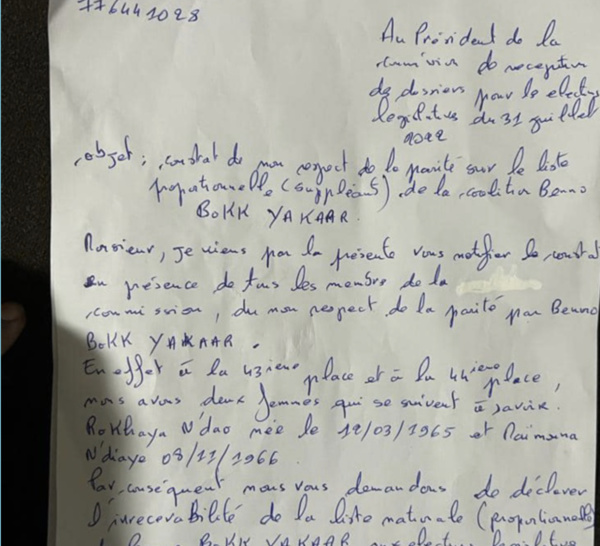 776441028
Au Président de la
commission de reception
des dossiers pour les elections
legislatives du 31 juillet
2022
objet : constat de non respect de la parité sur la liste
propationnelle (suppléants) de la coalition Benno
BOKK YAKAAR.
Monsieur, je viens par la présente vous notifier le constat
en présence de tous les membre de la
commission, du non respect de la parité par Benno
BOKK YAKAAR.
En effet à la 43ieme place et à la 44ieme place,
nous avons deux femmes qui se suivent à savoir.
Rokhaya N'dao née le 12/03/1965 et Maïmouna
N'diaye 08/11/1966
Par conséquent nous vous demandons de déclarer
l'irrecevabilité de la liste nationale (proportionnelle)
BOKK YAKAAR aux elections legislatives